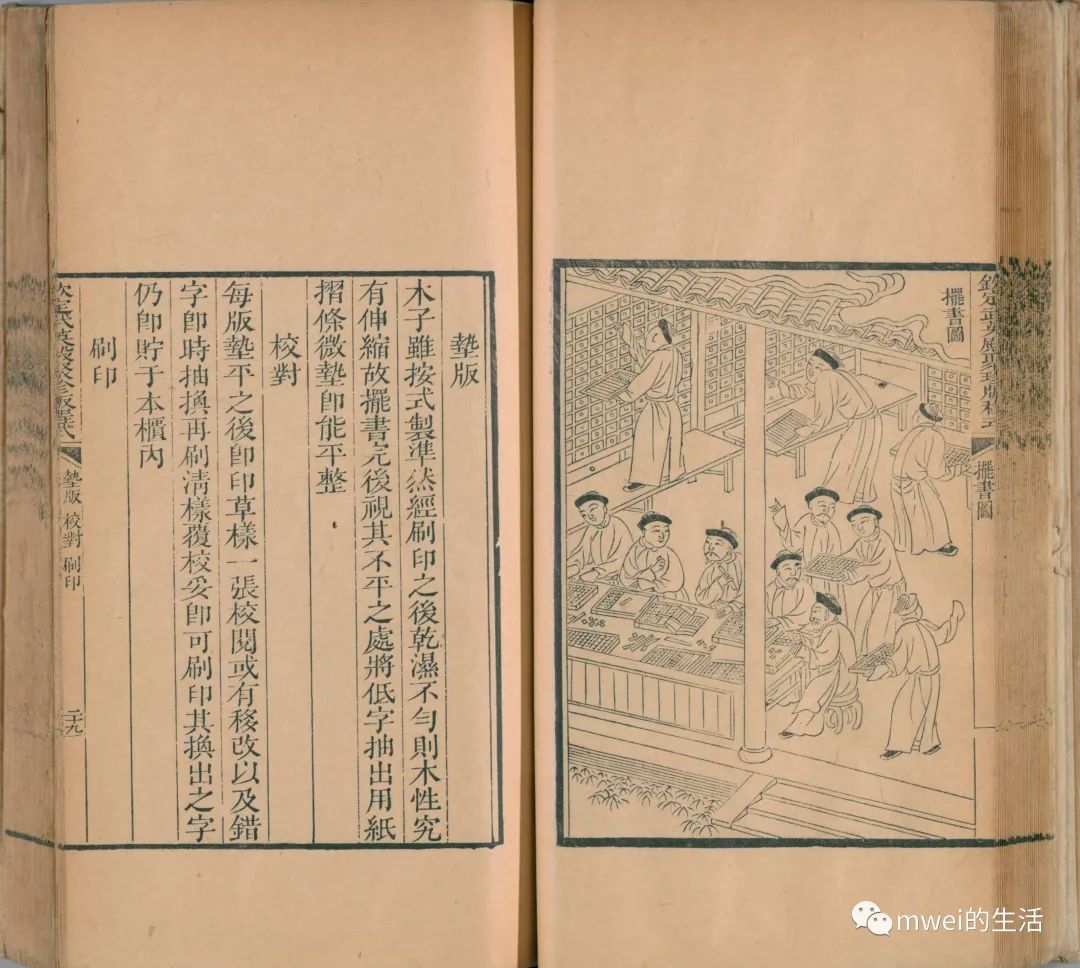 欽定武英殿聚珍版程式
擺書圖
擺書圖
墊版
木子雖按式製準然經刷印之後乾濕不勻則木性究
有伸縮故擺書完後視其不平之處將低字抽出用紙
摺條微墊卽能平整
校對
每版墊平之後卽印草樣一張校閱或有移改以及錯
字卽時抽換再刷清樣覆校妥卽可刷印其換出之字
仍卽貯于本櫃內
刷印
欽定武英殿聚珍版程式
墊版 校對 刷印
二十九
mwei的生活